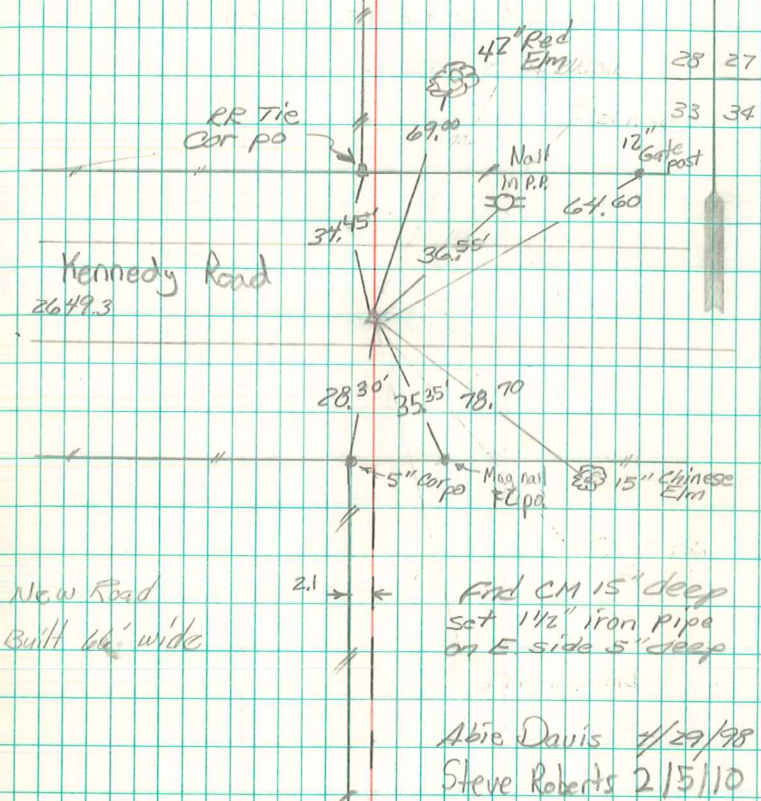 42" Red
Elm
28 27
33 34
RR Tie
Cor po
69.00
12"
Gate
post
Nail
in P.P.
34.45'
64.60
36.55'
Kennedy Road
2649.3
28.30'
35.35'
78.70
5" Cor po
Mag nail
po
15" Chinese
Elm
New Road
Built 66' wide
2.1
Fnd CM 15" deep
set 1 1/2" iron pipe
on E side 5" deep
Abie Davis 4/29/98
Steve Roberts 2/5/10